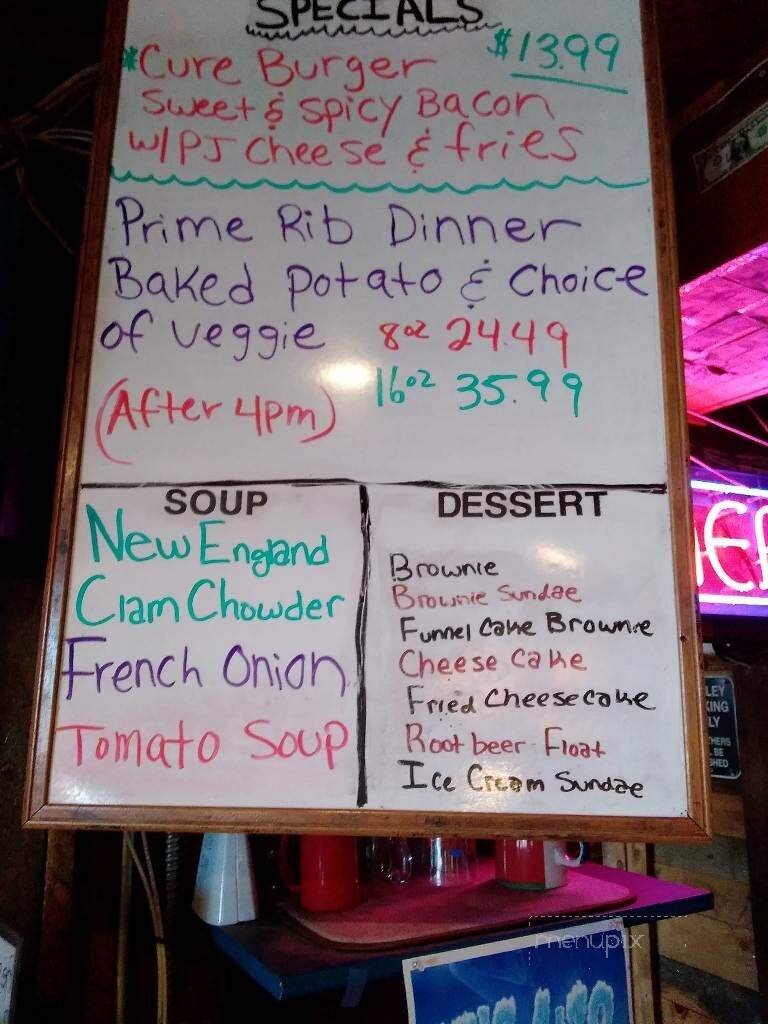 SPECIALS
*Cure Burger $13.99
Sweet & Spicy Bacon
w/PJ Cheese & fries
Prime Rib Dinner
Baked Potato & Choice
of veggie 8oz 24.49
16oz 35.99
(After 4pm)
SOUP
New England
Clam Chowder
French Onion
Tomato Soup
DESSERT
Brownie
Brownie Sundae
Funnel Cake Brownie
Cheese Cake
Fried Cheesecake
Root beer Float
Ice Cream Sundae
LEY
KING
LY
HERS
BE
SHED
menupix